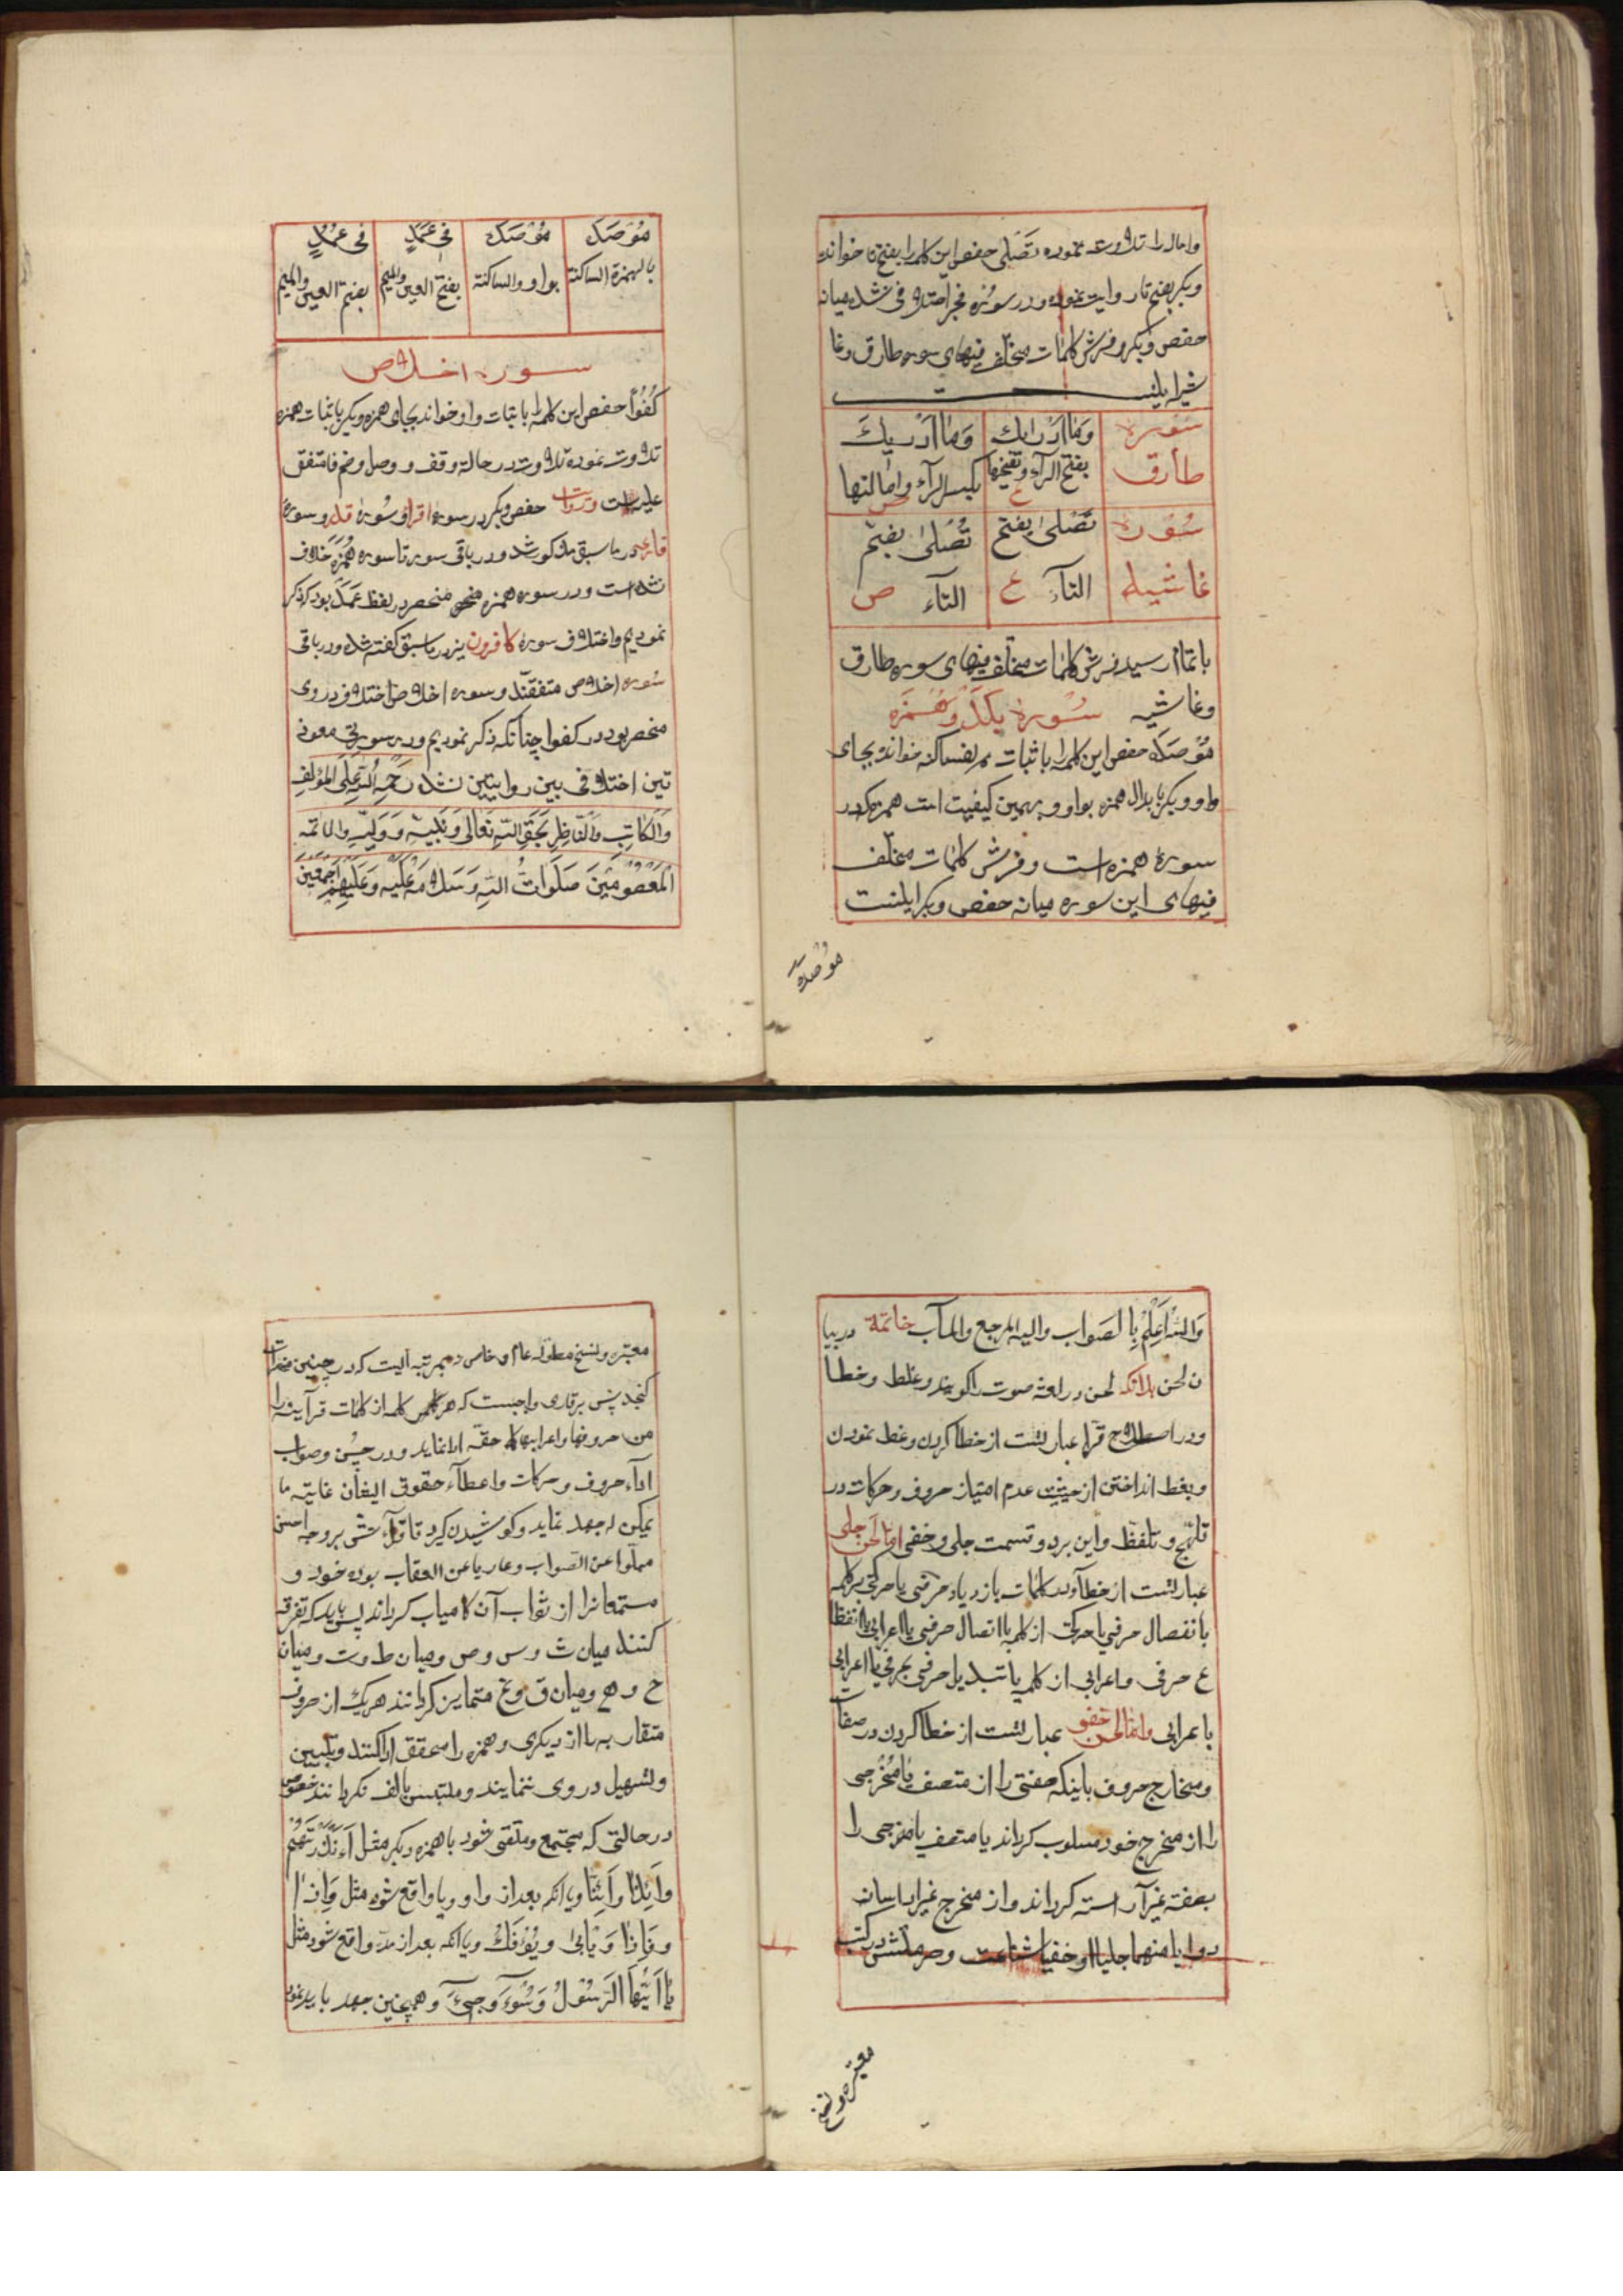 واماله را تلاوت نموده تَصْلى حفص این کلمه را بفتح تا خوانده
وبکر بضم تا روایت نموده ودر سوره فجر اختلافی نشده میانه
حفص وبکر وفرش کلمات مختلف فیهای سوره طارق وغا
شیه اینست
سُوره طارق
وَمَا اَدْرٰیك بفتح الرآء وتفخیمها ع
وَمَا اَدْریكَ بکسر الرآء وامالتها ص
سُوره غاشیه
تَصْلىٰ بفتح التآء ع
تُصْلىٰ بضم التآء ص
باتمام رسید فرش کلمات مختلف فیهای سوره طارق
وغاشیه سُورهٔ بلد وهُمَزه
مُؤْصَدَه حفص این کلمه را باثبات همزه ساکنه خوانده بجای
واو وبکر بابدال همزه بواو وبهمین کیفیت است همزه که در
سورهٔ همزه است وفرش کلمات مختلف
فیهای این سوره میانه حفص وبکر اینست
مُؤْصَدَه
مُؤْصَدَه بالهمزة الساکنة
مُوصَدَه بواو الساکنة
فى عَمَدٍ بفتح العین والمیم
فى عُمُدٍ بضم العین والمیم
سوره اخلاص
کُفُوًا حفص این کلمه را باثبات واو خوانده بجای همزه وبکر باثبات همزه
تلاوت نموده تلاوت در حالة وقف ووصل وضم فا متفق
علیه است حفص وبکر در سوره اقرا وسُورهٔ قدر وسوره
قارعه در ماسبق مذکور شد ودر باقی سور تا سوره هُمَزَه خلاف
نشده است ودر سوره همزه منحصر در لفظ عَمَد بود که ذکر
نمودیم واختلاف سورهٔ کافرون نیز در ماسبق گفته شده ودر باقی
سُوره اخلاص متفقند وسوره اخلاص اختلاف در وی
منحصر بود در کفوا چنانکه ذکر نمودیم ودر سورتی معوذ
تین اختلافی بین روایتین نشد رَحِمَ اللّه عَلَى المؤلف
وَالکاتِب وَالنّاظِر بَحَقِّ اللّهِ تَعالى وَنَبِیّه وَوَلِیّه والائمه
المَعْصُومینَ صَلَواتُ اللّهِ وَسَلامه عَلَیْه وَعَلَیْهِم اَجْمَعین
وَاللّه اَعْلَمْ بِالصَواب والیه المرجع والمآب خاتمة در بیا
ن لحن بدانکه لحن در لغة صوت را گویند وغلط وخطا
ودر اصطلاح قرا عبارتست از خطا کردن وغلط نمودن
وبغلط انداختن از حیثیت عدم امتیاز حروف وحرکات در
تلهج وتلفظ واین بر دو قسمت جلی وخفی اما لحن جلی
عبارتست از خطا آوردن کلمات بازدیاد حرفی یا حرکتی بر کلمه
یا نفصال حرفی یا حرکتی از کلمه یا اتصال حرفی یا اعرابی یا انقطا
ع حرفی واعرابی از کلمه یا تبدیل حرفی بحرفی یا اعرابی
باعرابی واما لحن خفی عبارتست از خطا کردن در صفات
ومخارج حروف باینکه صفتی را از متصف یا مخرجی
را از مخرج خود مسلوب گرداند یا متصف یا مخرجی را
بصفة غیر آراسته گرداند واز مخرج غیر ادا سازد
وحرمتش در کتب
معتبره ونسخ
معتبره ونسخ مطوله عام وخاص بمرتبه ایست که در چنین مختصرات
گنجد پس بر قاری واجبست که هر کلمه از کلمات قرآنیه را
من حروفها واعرابها کما حقه ادا نماید ودر حُسن وصواب
ادآء حروف وحرکات واعطآء حقوق ایشان غایة ما
یمکن له جهد نماید وکوشیدن گیرد تا تلاوتش بر وجه احسن
مملوا عن الصواب وعاریا عن العقاب بوده خود و
مستمعانرا از ثواب آن کامیاب گرداند پس باید که تفرقه
کنند میان ث وس وص ومیان ط وت ومیان
ح وه ومیان ق وغ متمایز گردانند هر یک از حروف
متقاربه را از دیگری وهمزه را محقق ادا کنند وتلیین
وتسهیل در وی ننمایند وملتبس بالف نگردانند خصوص
در حالتی که مجتمع وملتقی شود با همزه دیگر مثل ءَاَنْذَرْتَهُمْ
وَاَئِذا وَاَئِنّا ویا آنکه بعد از واو ویا واقع شود مثل وَاِذا
وفَاِذا وَیَأبىٰ ویُؤفَكُ ویا آنکه بعد از مد واقع شود مثل
یا اَیُّهَا الرَسُولُ وَسُوءَ وَجِیءَ وهمچنین جهد باید نمود